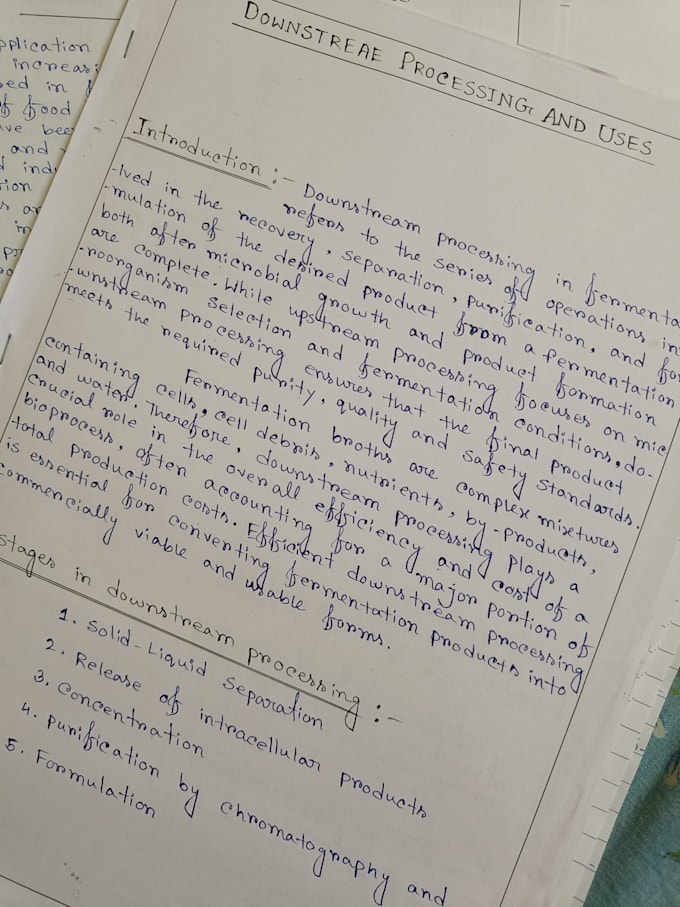 pplication
increasi
sed in
of food
ve bee
and
d indu
tion
in
DOWNSTREAE PROCESSING AND USES
Introduction :- Downstream processing in fermenta
refers to the series of operations in
-lved in the recovery, separation, purification, and for
-mulation of the desired product from a fermentation
both after microbial growth and product formation
are complete. While upstream processing focuses on mic
-roorganism selection and fermentation conditions, do-
-wnstream processing ensures that the final product
meets the required purity, quality and safety standards.
Fermentation broths are complex mixtures
containing cells, cell debris, nutrients, by-products,
and water. Therefore, downstream processing plays a
crucial role in the overall efficiency and cost of a
bioprocess, often accounting for a major portion of
total production costs. Efficient downstream processing
is essential for converting fermentation products into
commercially viable and usable forms.
stages in downstream processing :-
1. Solid-Liquid Separation
2. Release of intracellular products
3. Concentration
4. purification by chromatography and
5. Formulation